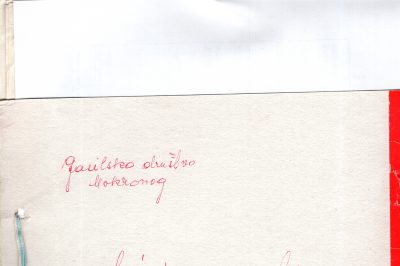 Gasilsko društvo
Mokronog